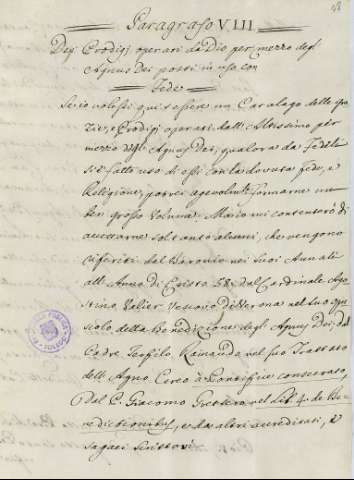 Paragrafo VIII
Dei Prodigi operari da Dio per mezzo degl
Agnus Dei posti in uso con
Fede
Se io volessi qui tessere un Catalogo delle gra
zie, e Prodigi operari dall' Altissimo per
mezzo degl' Agnus Dei, qualora da Fedeli
si è fatto uso di essi con la dovuta fede, e
Religione, potrei agevolmte formarne un
ben grosso Volume. Ma io mi contenterò di
accettarne soltanto alcuni, che vengono
riferiti dal Baronio nei suoi Annali
all' Anno di Cristo 58: dal Cardinale Ago
stino Valier Vescovo di Verona nel suo opu
scolo della Benedizione degl' Agnus Dei, dal
Padre Teofilo Rainaudo nel suo Trattato
dell' Agno Cereo a Pontifice consecrato,
dal P. Giacomo Gretsero nel Lib. 4. de Be
nedictionibus, e da altri accreditati, e
sagaci Scrittori.